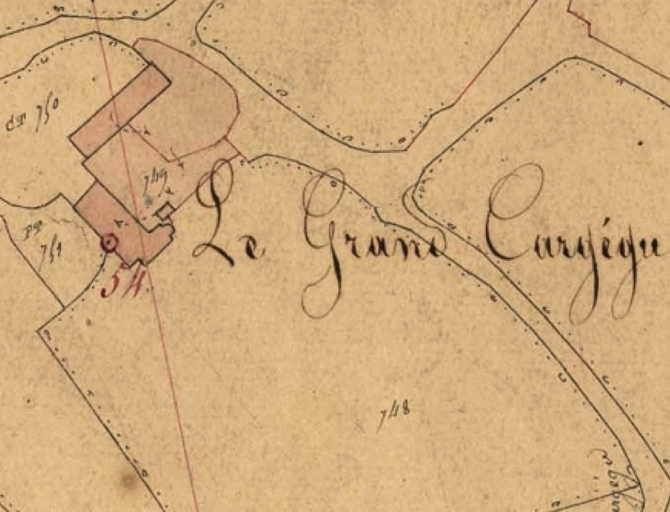 750
749
751
54
Le Grand Cargégu
748